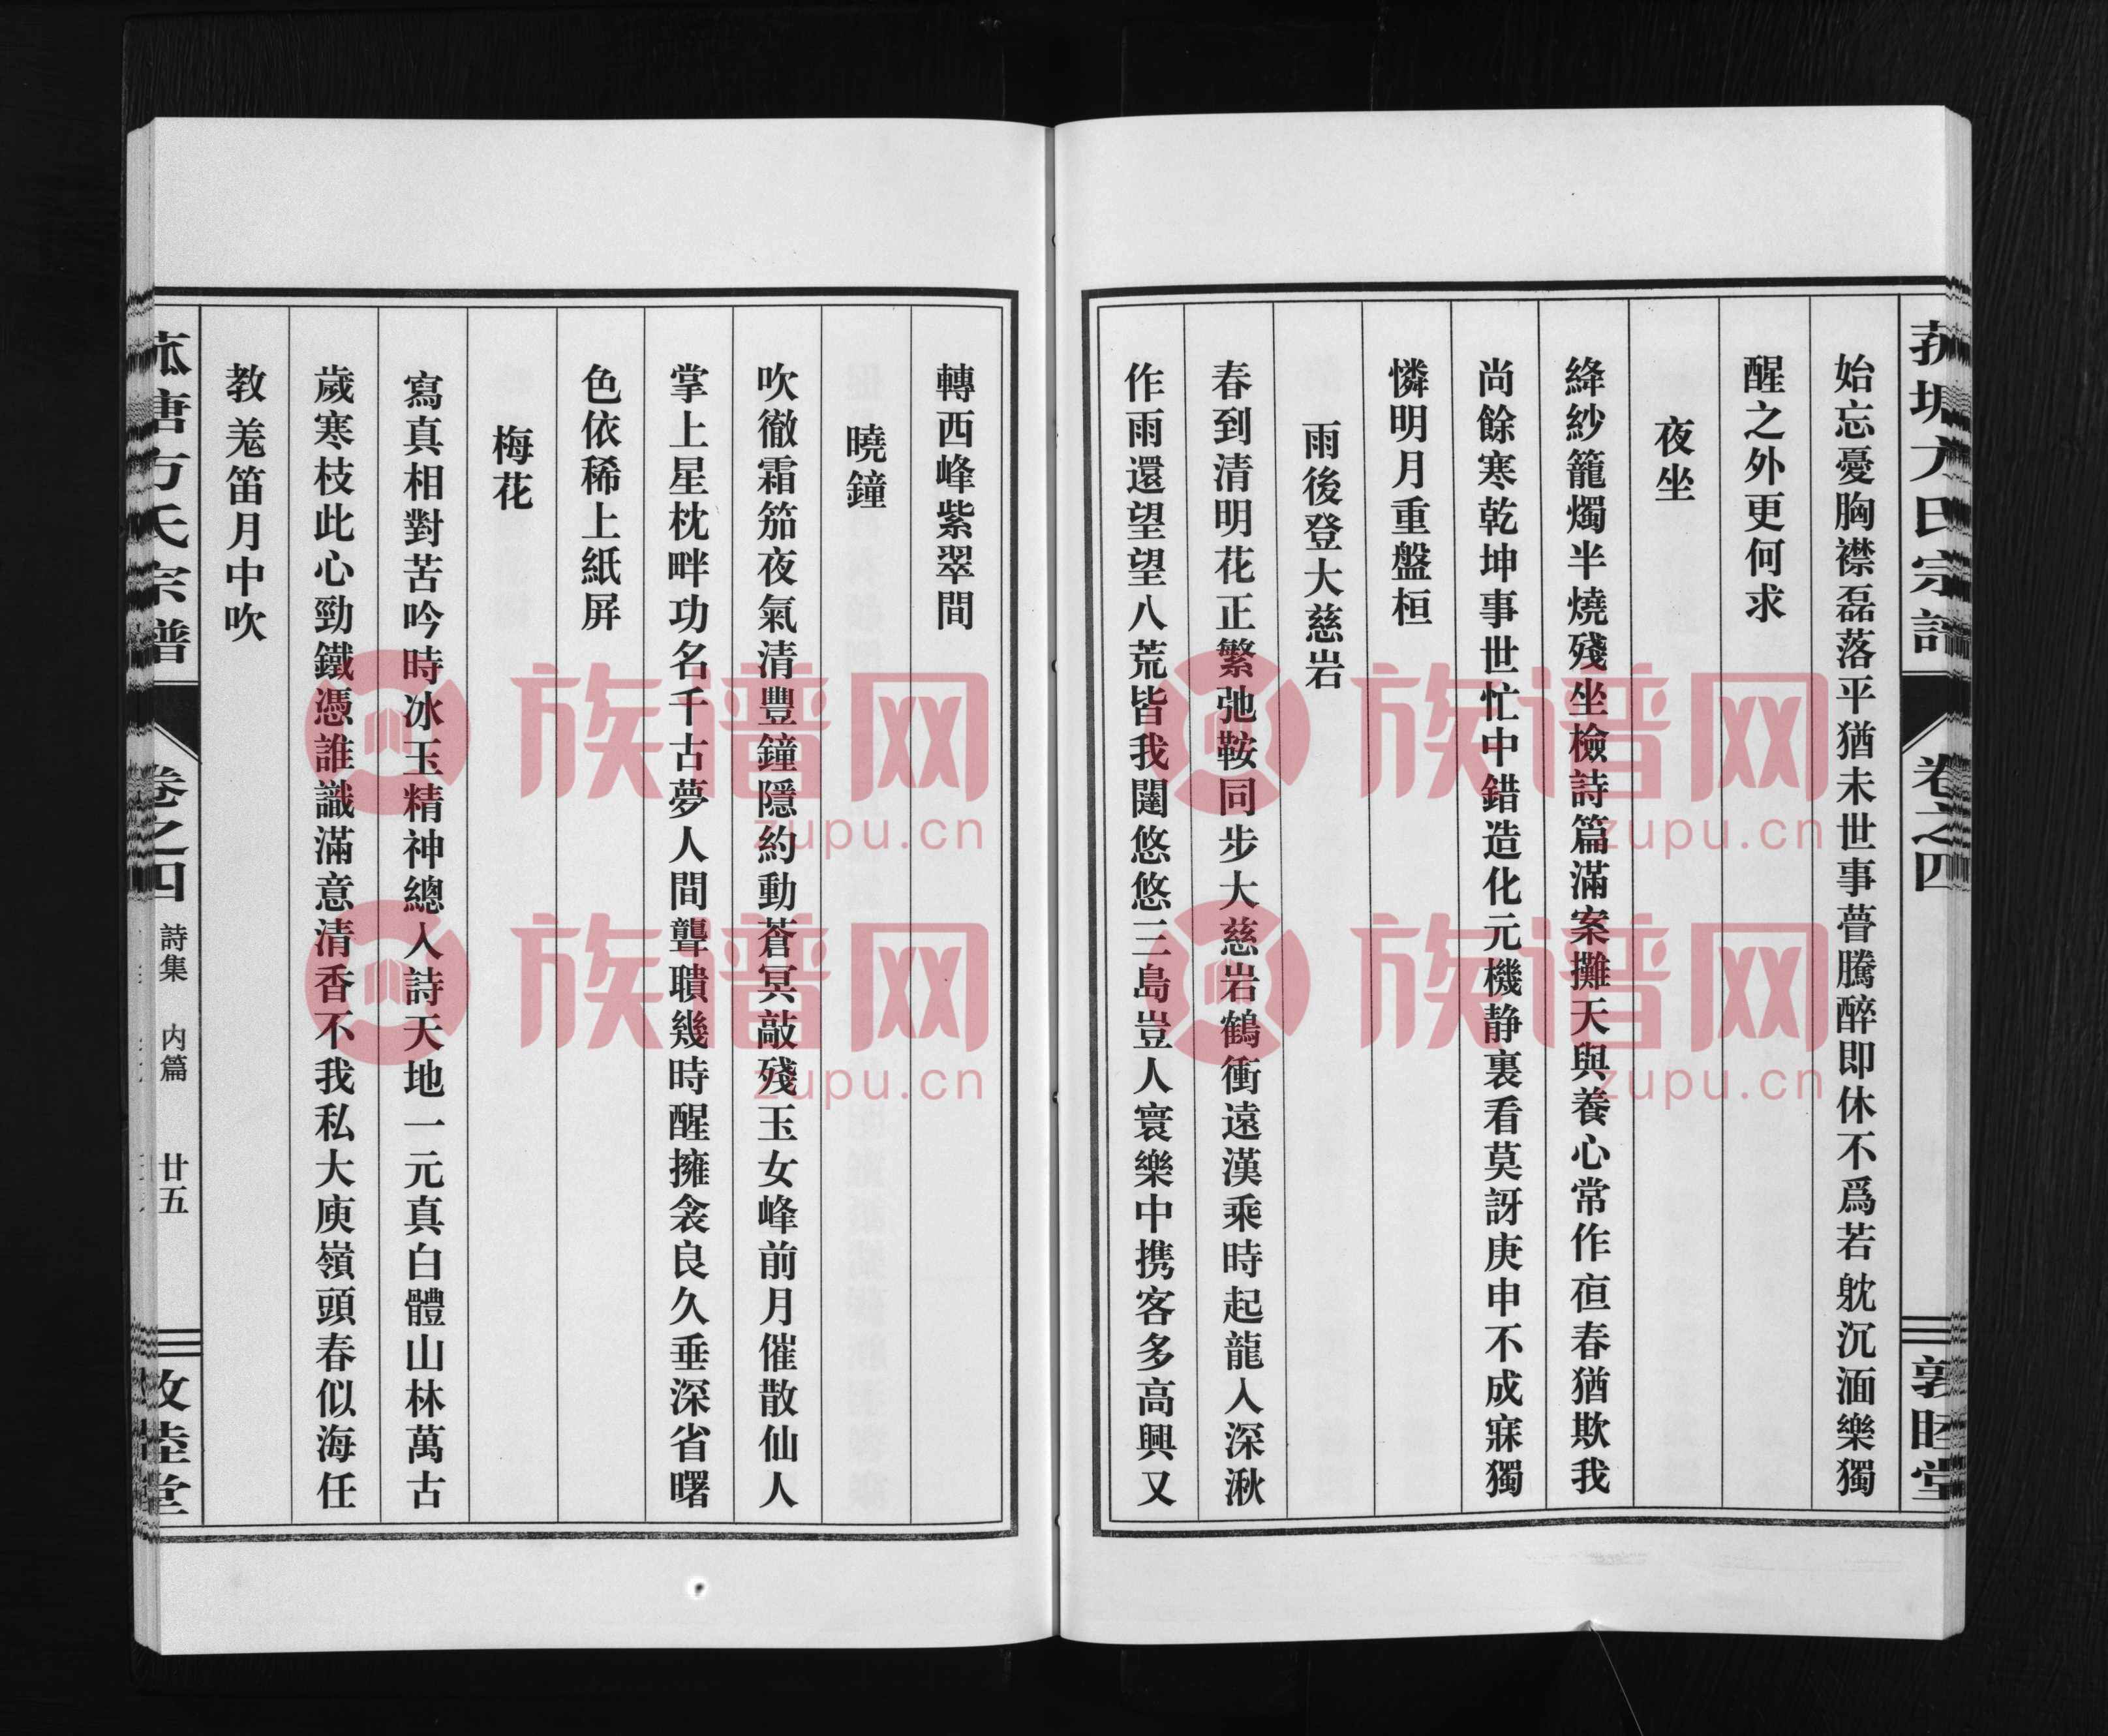 始忘憂胸襟磊落平猶未世事瞢騰醉即休不爲若躭沉湎樂獨
醒之外更何求
夜坐
絳紗籠燭半燒殘坐檢詩篇滿案攤天與養心常作㐁春猶欺我
尚餘寒乾坤事世忙中錯造化元機静裏看莫訝庚申不成寐獨
憐明月重盤桓
雨後登大慈岩
春到清明花正繁弛鞍同步大慈岩鶴衝遠漢乘時起龍入深湫
作雨還望望八荒皆我闥悠悠三島豈人寰樂中携客多高興又
轉西峰紫翠間
曉鐘
吹徹霜笳夜氣清豐鐘隱約動蒼冥敲殘玉女峰前月催散仙人
掌上星枕畔功名千古夢人間聾聵幾時醒擁衾良久垂深省曙
色依稀上紙屏
梅花
寫真相對苦吟時冰玉精神總入詩天地一元真白體山林萬古
歲寒枝此心勁鐵憑誰識滿意清香不我私大庾嶺頭春似海任
教羗笛月中吹
方氏宗譜
卷之四
詩集 内篇 廿五
敦睦堂
族谱网
zupu.cn
族谱网
zupu.cn
族谱网
zupu.cn
族谱网
zupu.cn